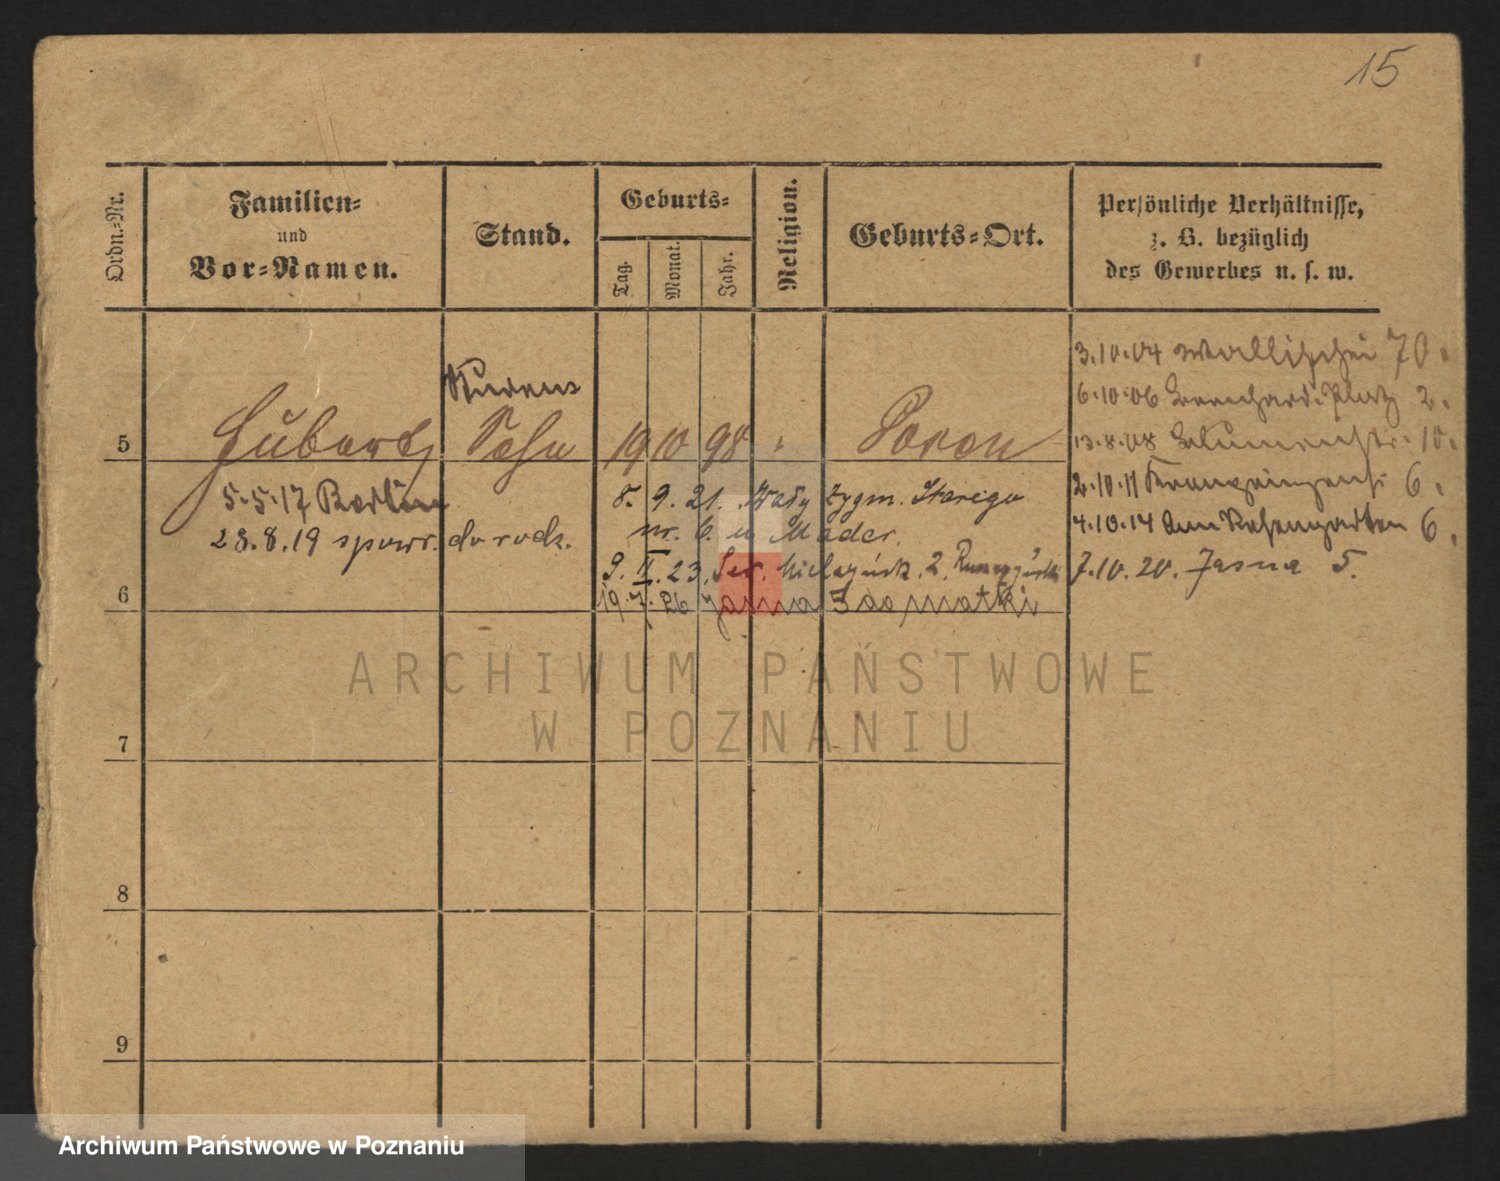 15
Ordn.-Nr.
Familien-
und
Vor-Namen.
Stand.
Geburts-
Tag.
Monat.
Jahr.
Religion.
Geburts-Ort.
Persönliche Verhältnisse,
z. B. bezüglich
des Gewerbes u. s. w.
5 Hubert Sohn 19 10 98 " Posen
3.10.04 Wallischei 70.
6.10.06 Bernhard. Platz 2.
13.8.08 Blumenstr. 10.
2.10.11 Kronprinzenst. 6.
4.10.14 Am Rosengarten 6.
7.10.20. Jasna 5.
5.5.17 Berlin
28.8.19 spowr. do rodz.
8. 9. 21. Wały Zygm. Starego
nr. 6. u Mader.
9. II. 23. Sew. Mielżyńsk. 2.
19.7.26 Jasna 5 do matki
6
7
8
9
ARCHIWUM PAŃSTWOWE
W POZNANIU
Archiwum Państwowe w Poznaniu